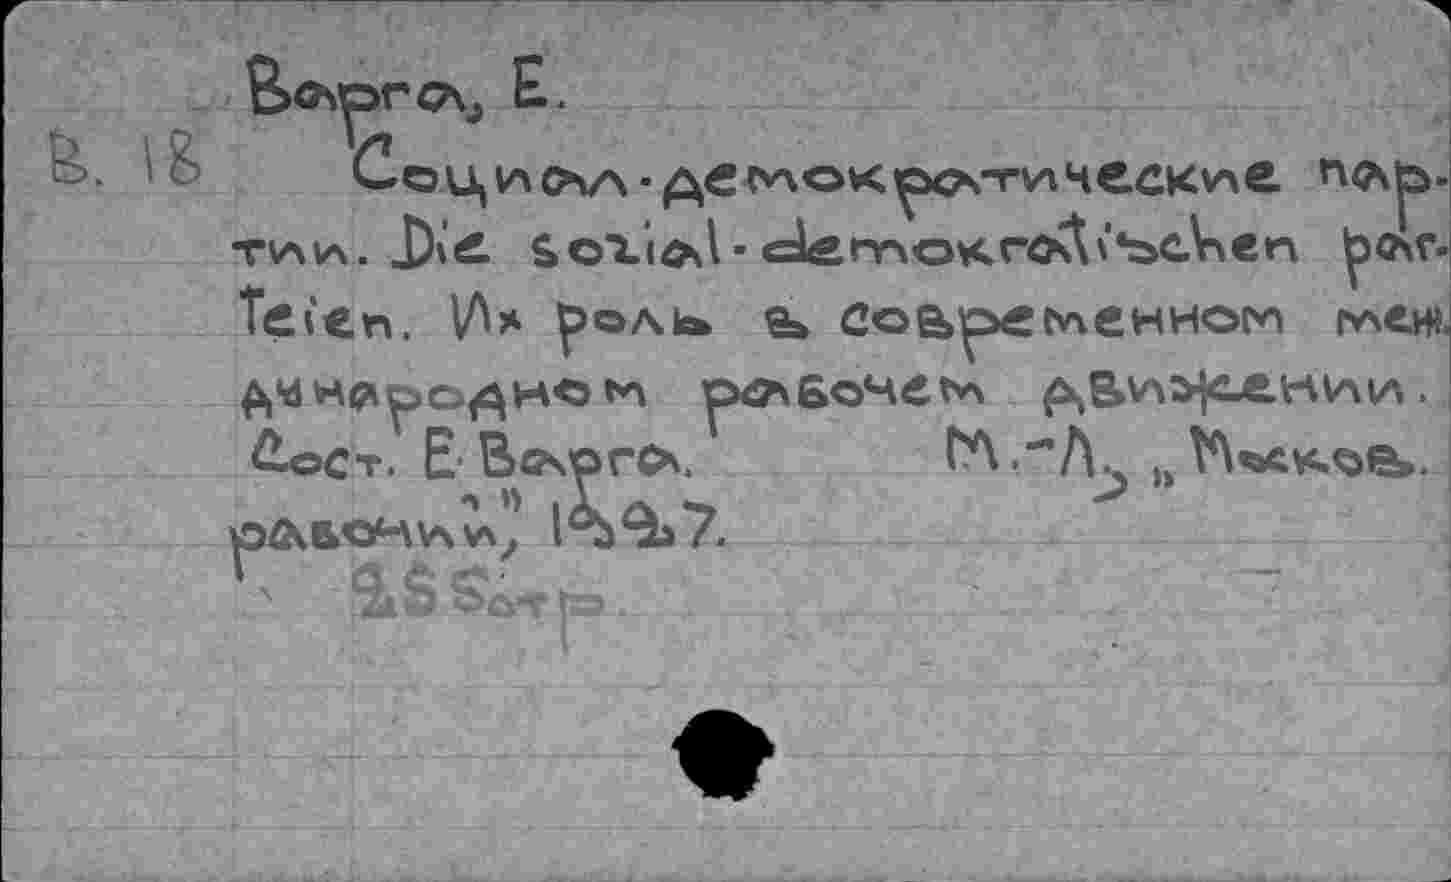 Варга, Е.
В. 18 Социал-демократические пар-
тии. Die Sozial-demokratischen par-
Teien. Их роль в современном меж
дународном рабочем движении.
Сост. Е. Варга. М.-Л., „Москов.
рабочий", 1927.
258 стр.